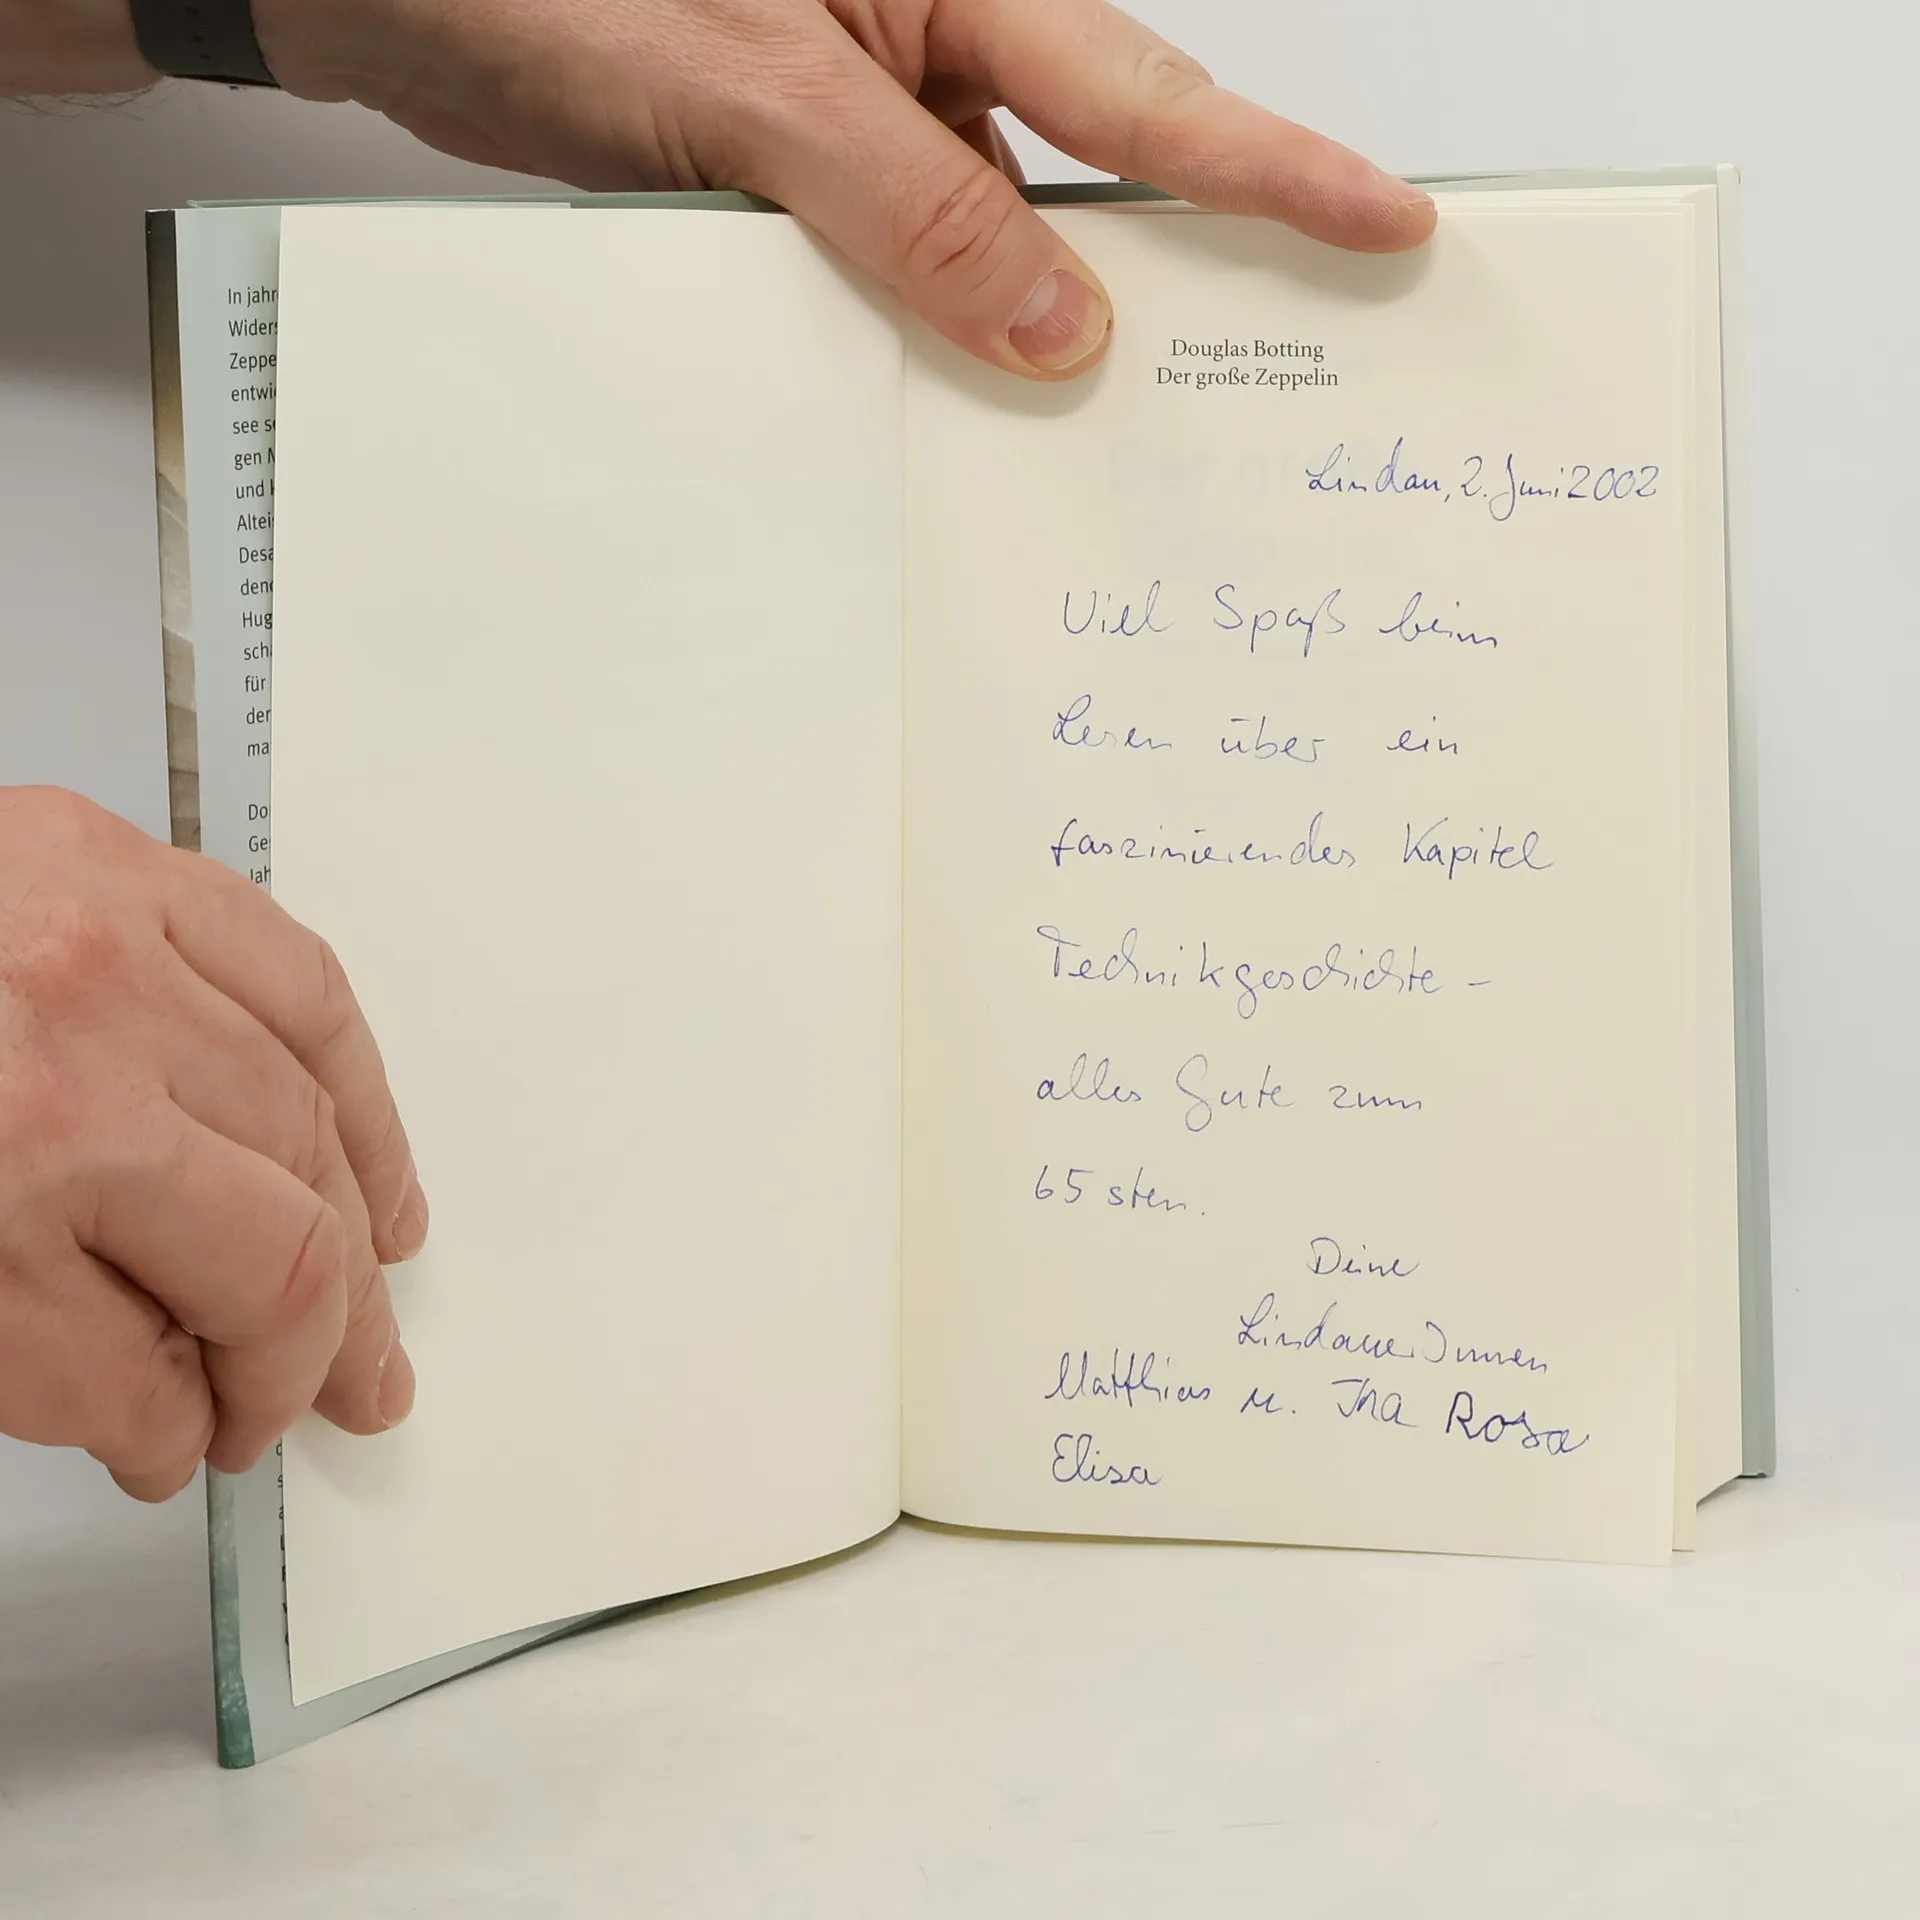 In jahr
Widers
Zeppe
entwi
see s
gen
und
Altei
Desa
den
Hug
sch
für
der
ma
Do
Ge
Jah
Douglas Botting
Der große Zeppelin
Lindau, 2. Juni 2002
Viel Spaß beim
Lesen über ein
faszinierendes Kapitel
Technikgeschichte -
alles Gute zum
65 sten.
Deine
LindauerInnen
Matthias u. Ina Rosa
Elisa